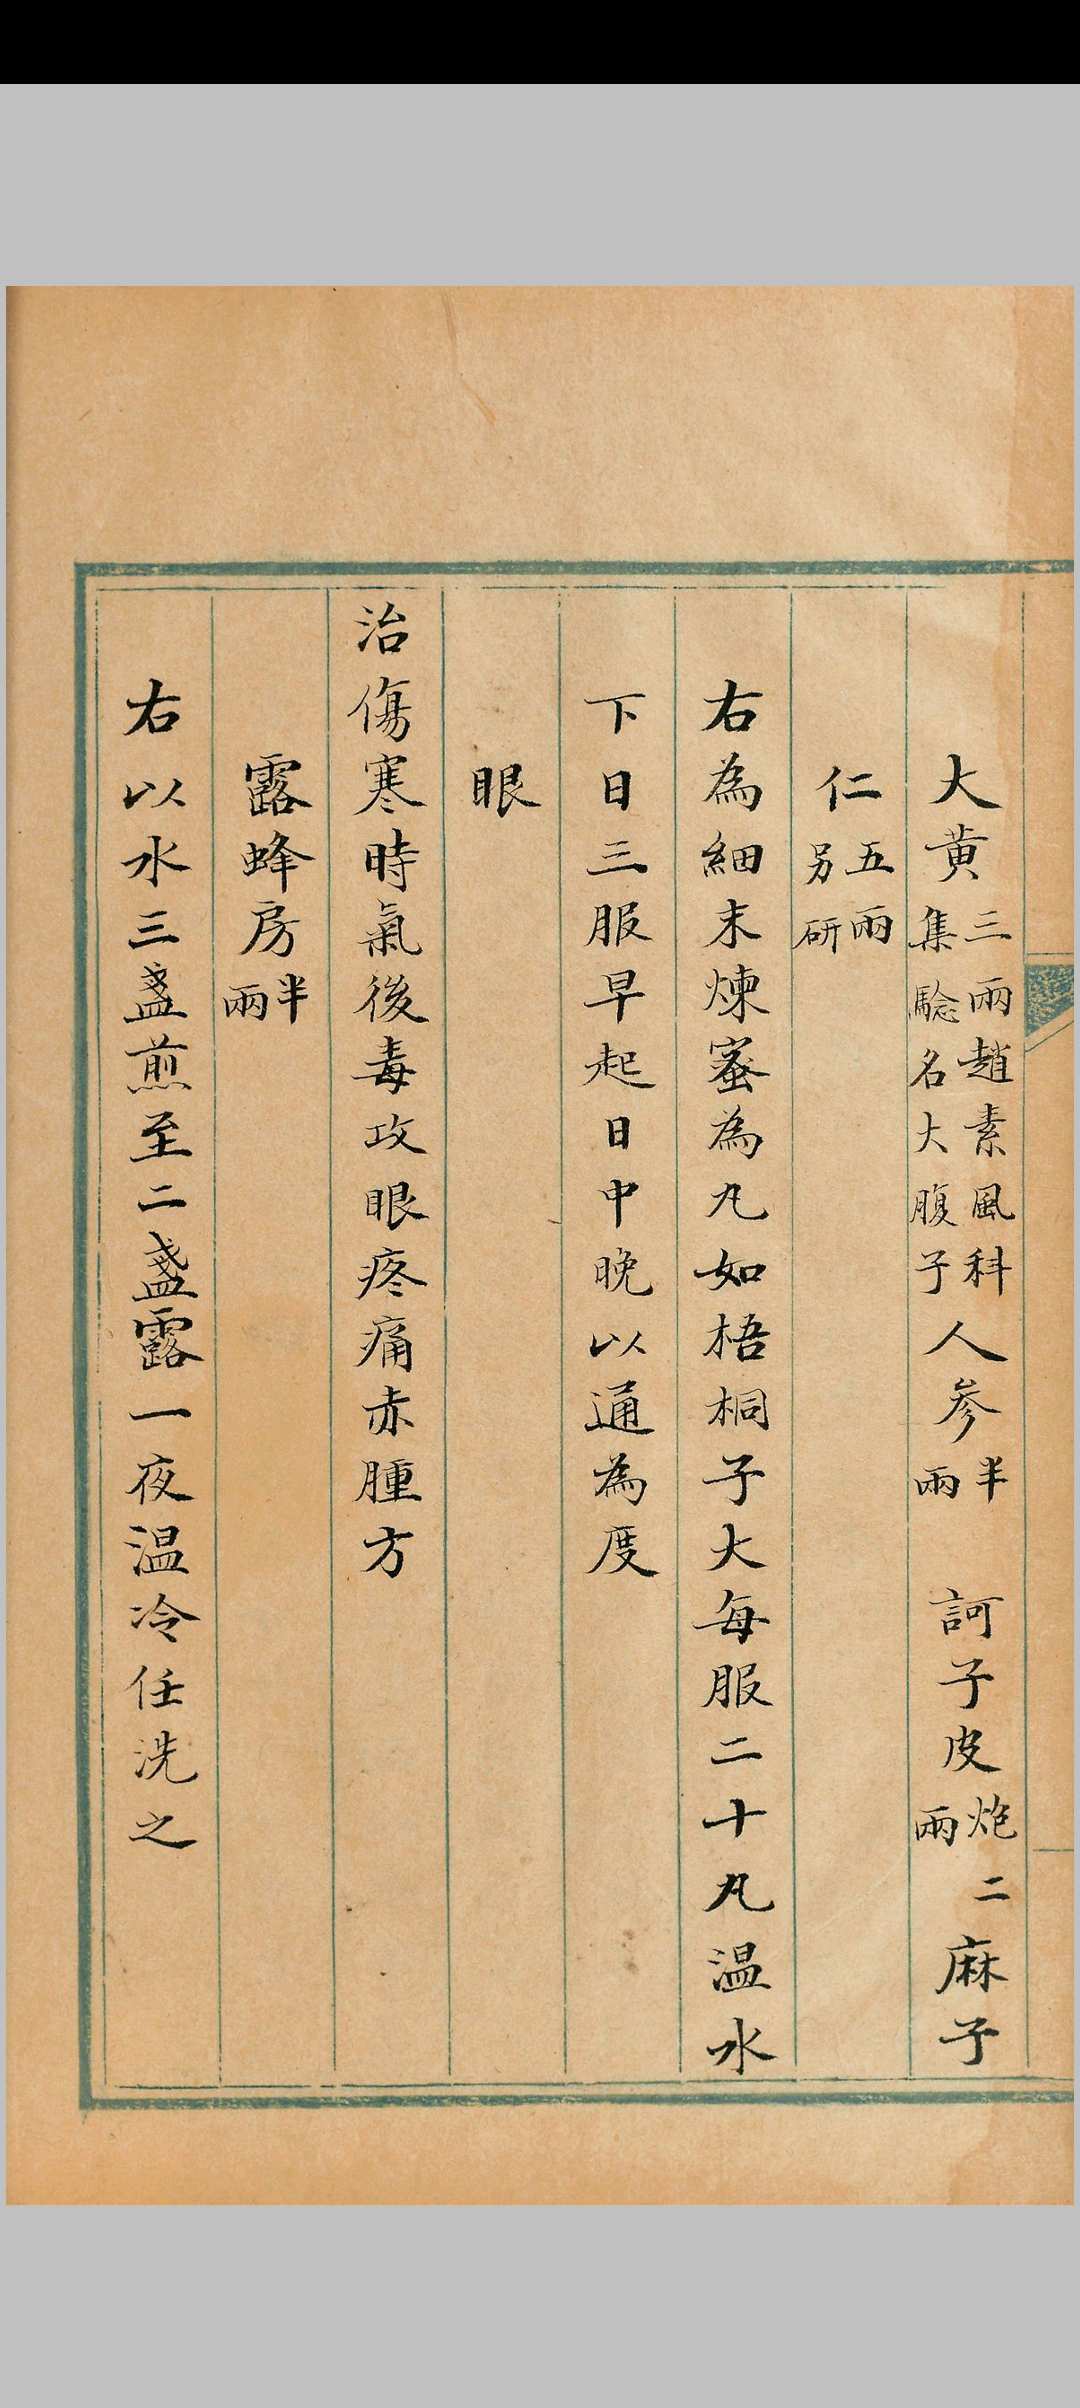 大黄三兩趙素風科集驗名大腹子人參半兩 訶子皮炮二兩麻子
仁五兩另研
右為細末煉蜜為丸如梧桐子大每服二十丸温水
下日三服早起日中晚以通為度
眼
治傷寒時氣後毒攻眼疼痛赤腫方
露蜂房半兩
右以水三盞煎至二盞露一夜温冷任洗之